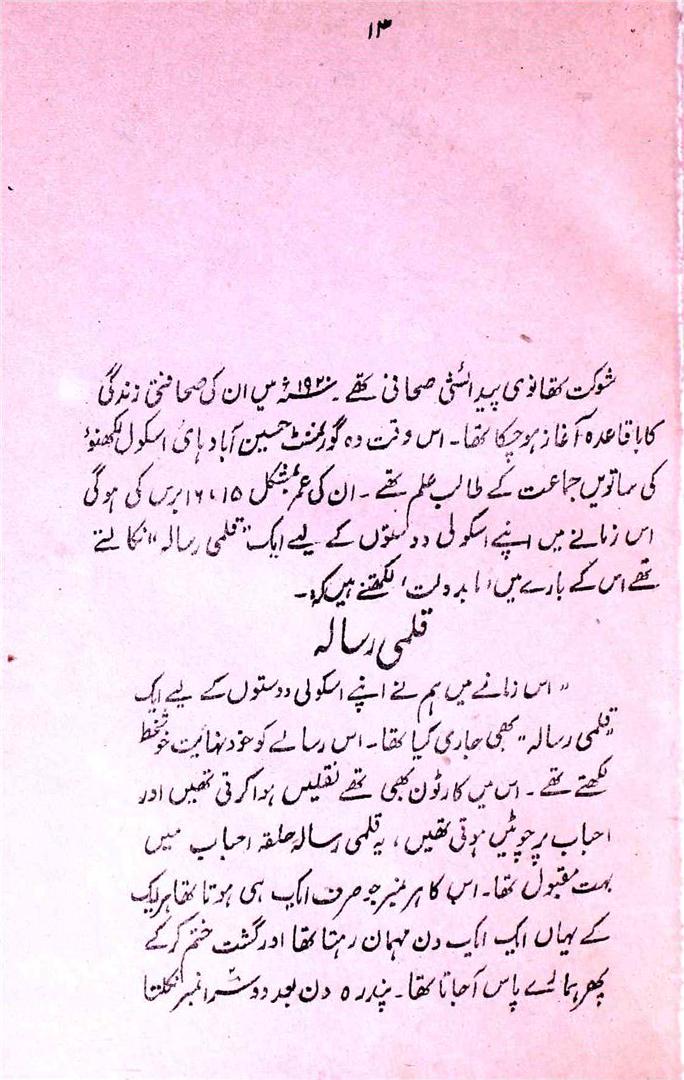 ۱۳
شوکت تھانوی پیدائشی صحافی تھے ۔ ۱۹۲۰ء میں ان کی صحافتی زندگی
کا باقاعدہ آغاز ہوچکا تھا۔ اس وقت وہ گورنمنٹ حسین آباد ہائی اسکول لکھنؤ
کی ساتویں جماعت کے طالب علم تھے ۔ ان کی عمر بمشکل ۱۵، ۱۶ برس کی ہوگی
اس زمانے میں اپنے اسکولی دوستوں کے لیے ایک "قلمی رسالہ" نکالتے
تھے اس کے بارے میں 'مابدولت' لکھتے ہیں کہ:۔
قلمی رسالہ
"اس زمانے میں ہم نے اپنے اسکولی دوستوں کے لیے ایک
"قلمی رسالہ" بھی جاری کیا تھا۔ اس رسالے کو خود نہایت خوشخط
لکھتے تھے ۔ اس میں کارٹون بھی تھے نقلیں ہوا کرتی تھیں اور
احباب پر چوٹیں ہوتی تھیں، یہ قلمی رسالہ حلقہ احباب میں
بہت مقبول تھا۔ اس کا ہر نمبر جو صرف ایک ہی ہوتا تھا ہر ایک
کے یہاں ایک ایک دن مہمان رہتا تھا اور گشت ختم کرکے
پھر ہمارے پاس آجاتا تھا۔ پندرہ دن بعد دوسرا نمبر نکلتا